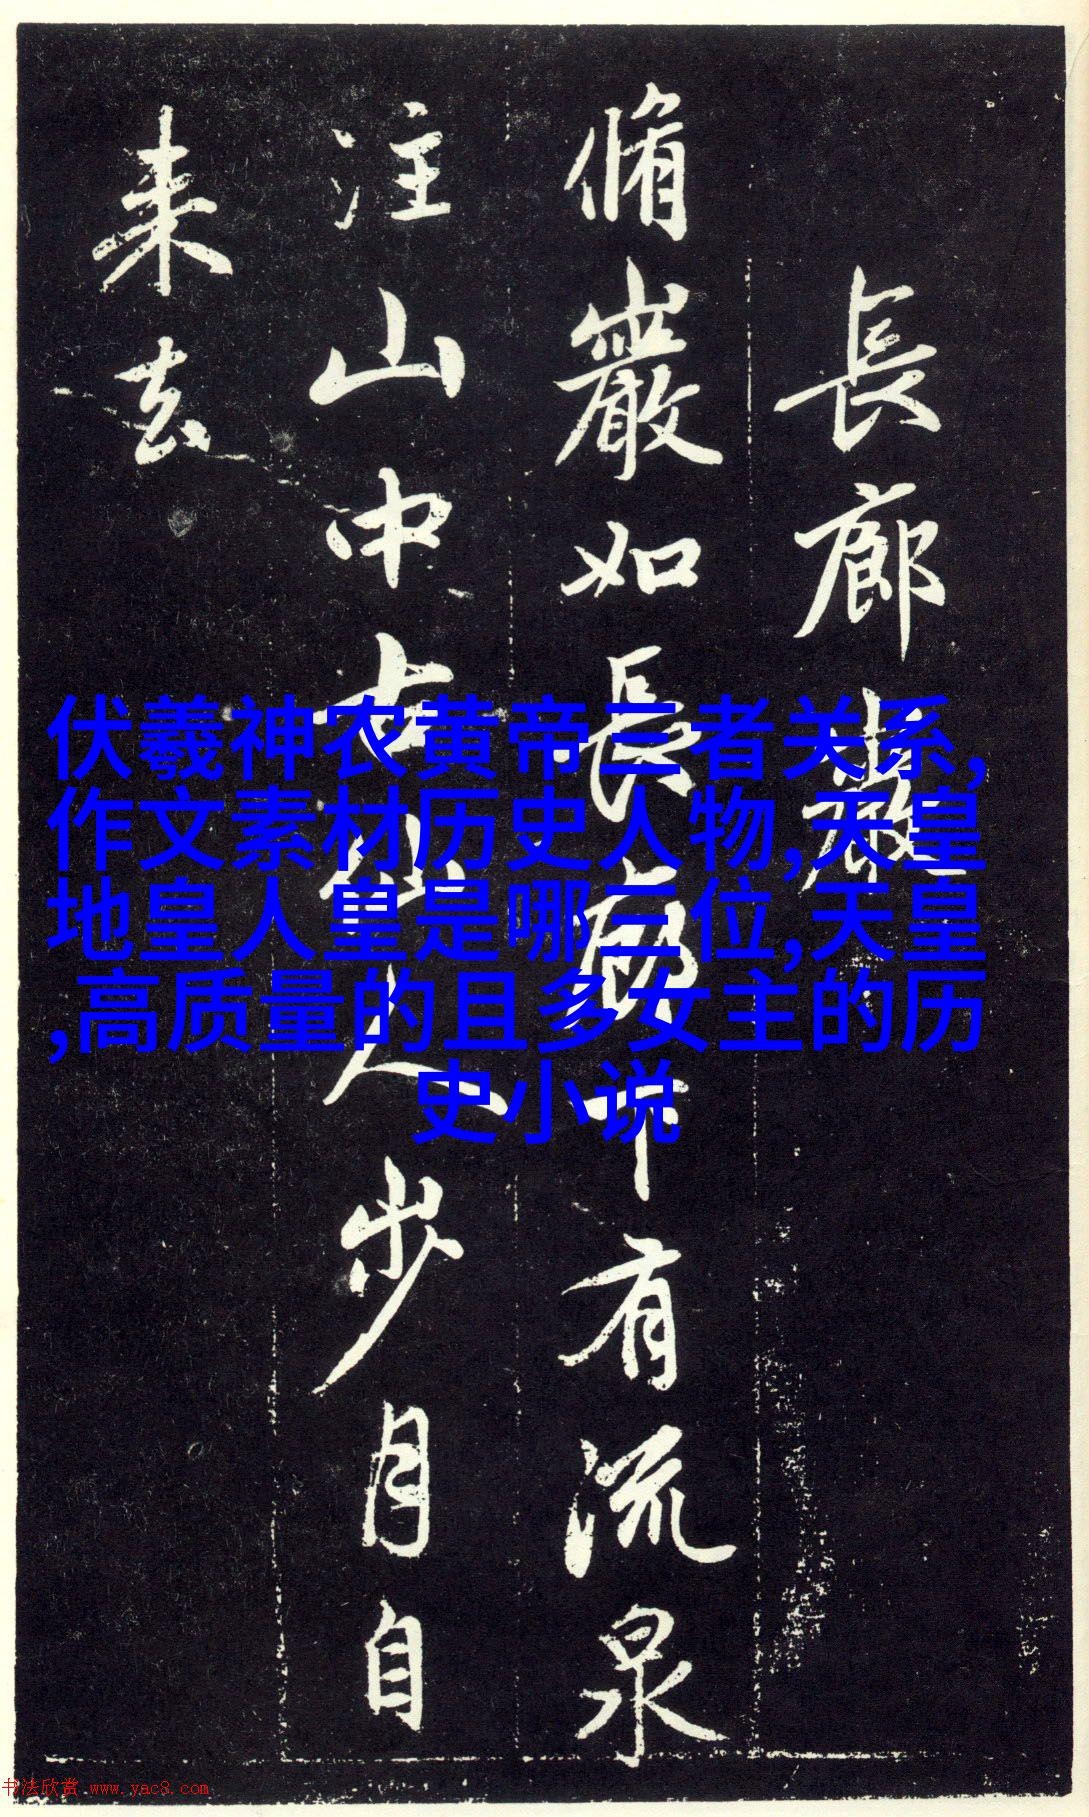 長廊巖
脩巖如長廊下有流泉
注山中古仙人步月自
来去
伏羲神农黄帝三者关系,
作文素材历史人物,天皇
地皇人皇是哪三位,天皇
,高质量的且多女主的历
史小说
书法欣赏 www.yac8.com